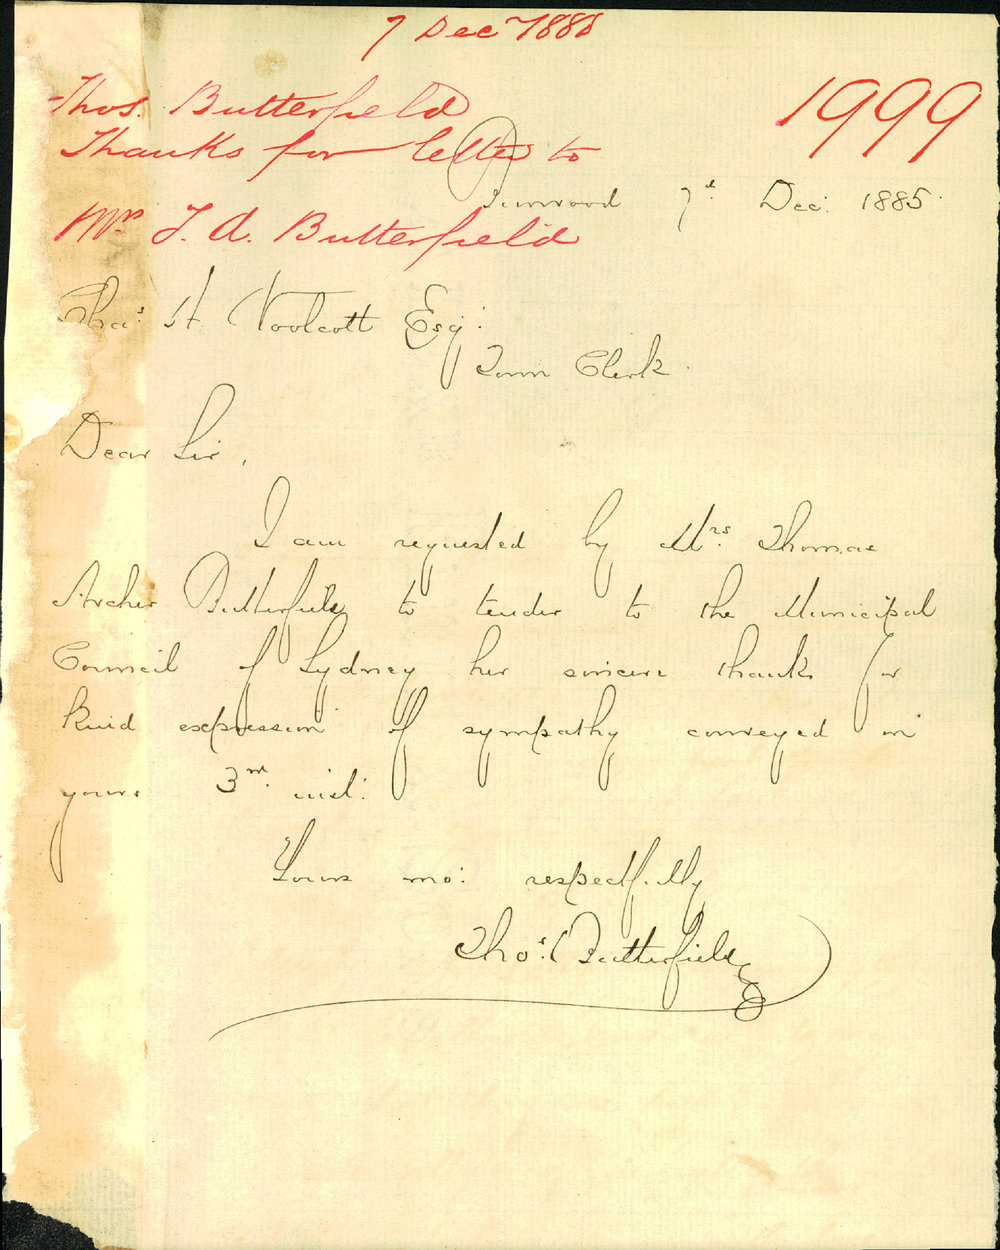 7 Dec 1885
Thos. Butterfield
1999
Thanks for letter to
Burwood 7th Dec: 1885.
Mrs T. A. Butterfield
Chas: H. Woolcott Esq:
Town Clerk.
Dear Sir,
I am requested by Mrs. Thomas
Archer Butterfield to tender to the Municipal
Council of Sydney her sincere thanks for
kind expression of sympathy conveyed in
yours 3rd. inst:
Yours mo: respectfully
Thos. Butterfield